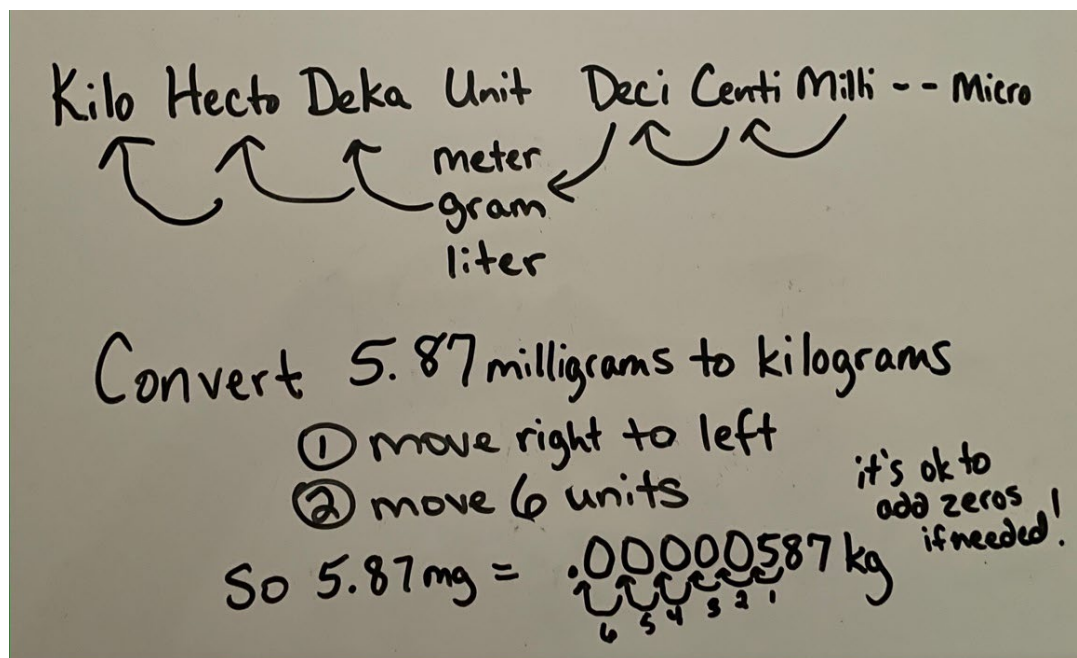 Kilo Hecto Deka Unit Deci Centi Milli -- Micro
meter
gram
liter
Convert 5.87 milligrams to kilograms
① move right to left
② move 6 units
it's ok to
add zeros
if needed!
So 5.87mg = .00000587 kg
6 5 4 3 2 1